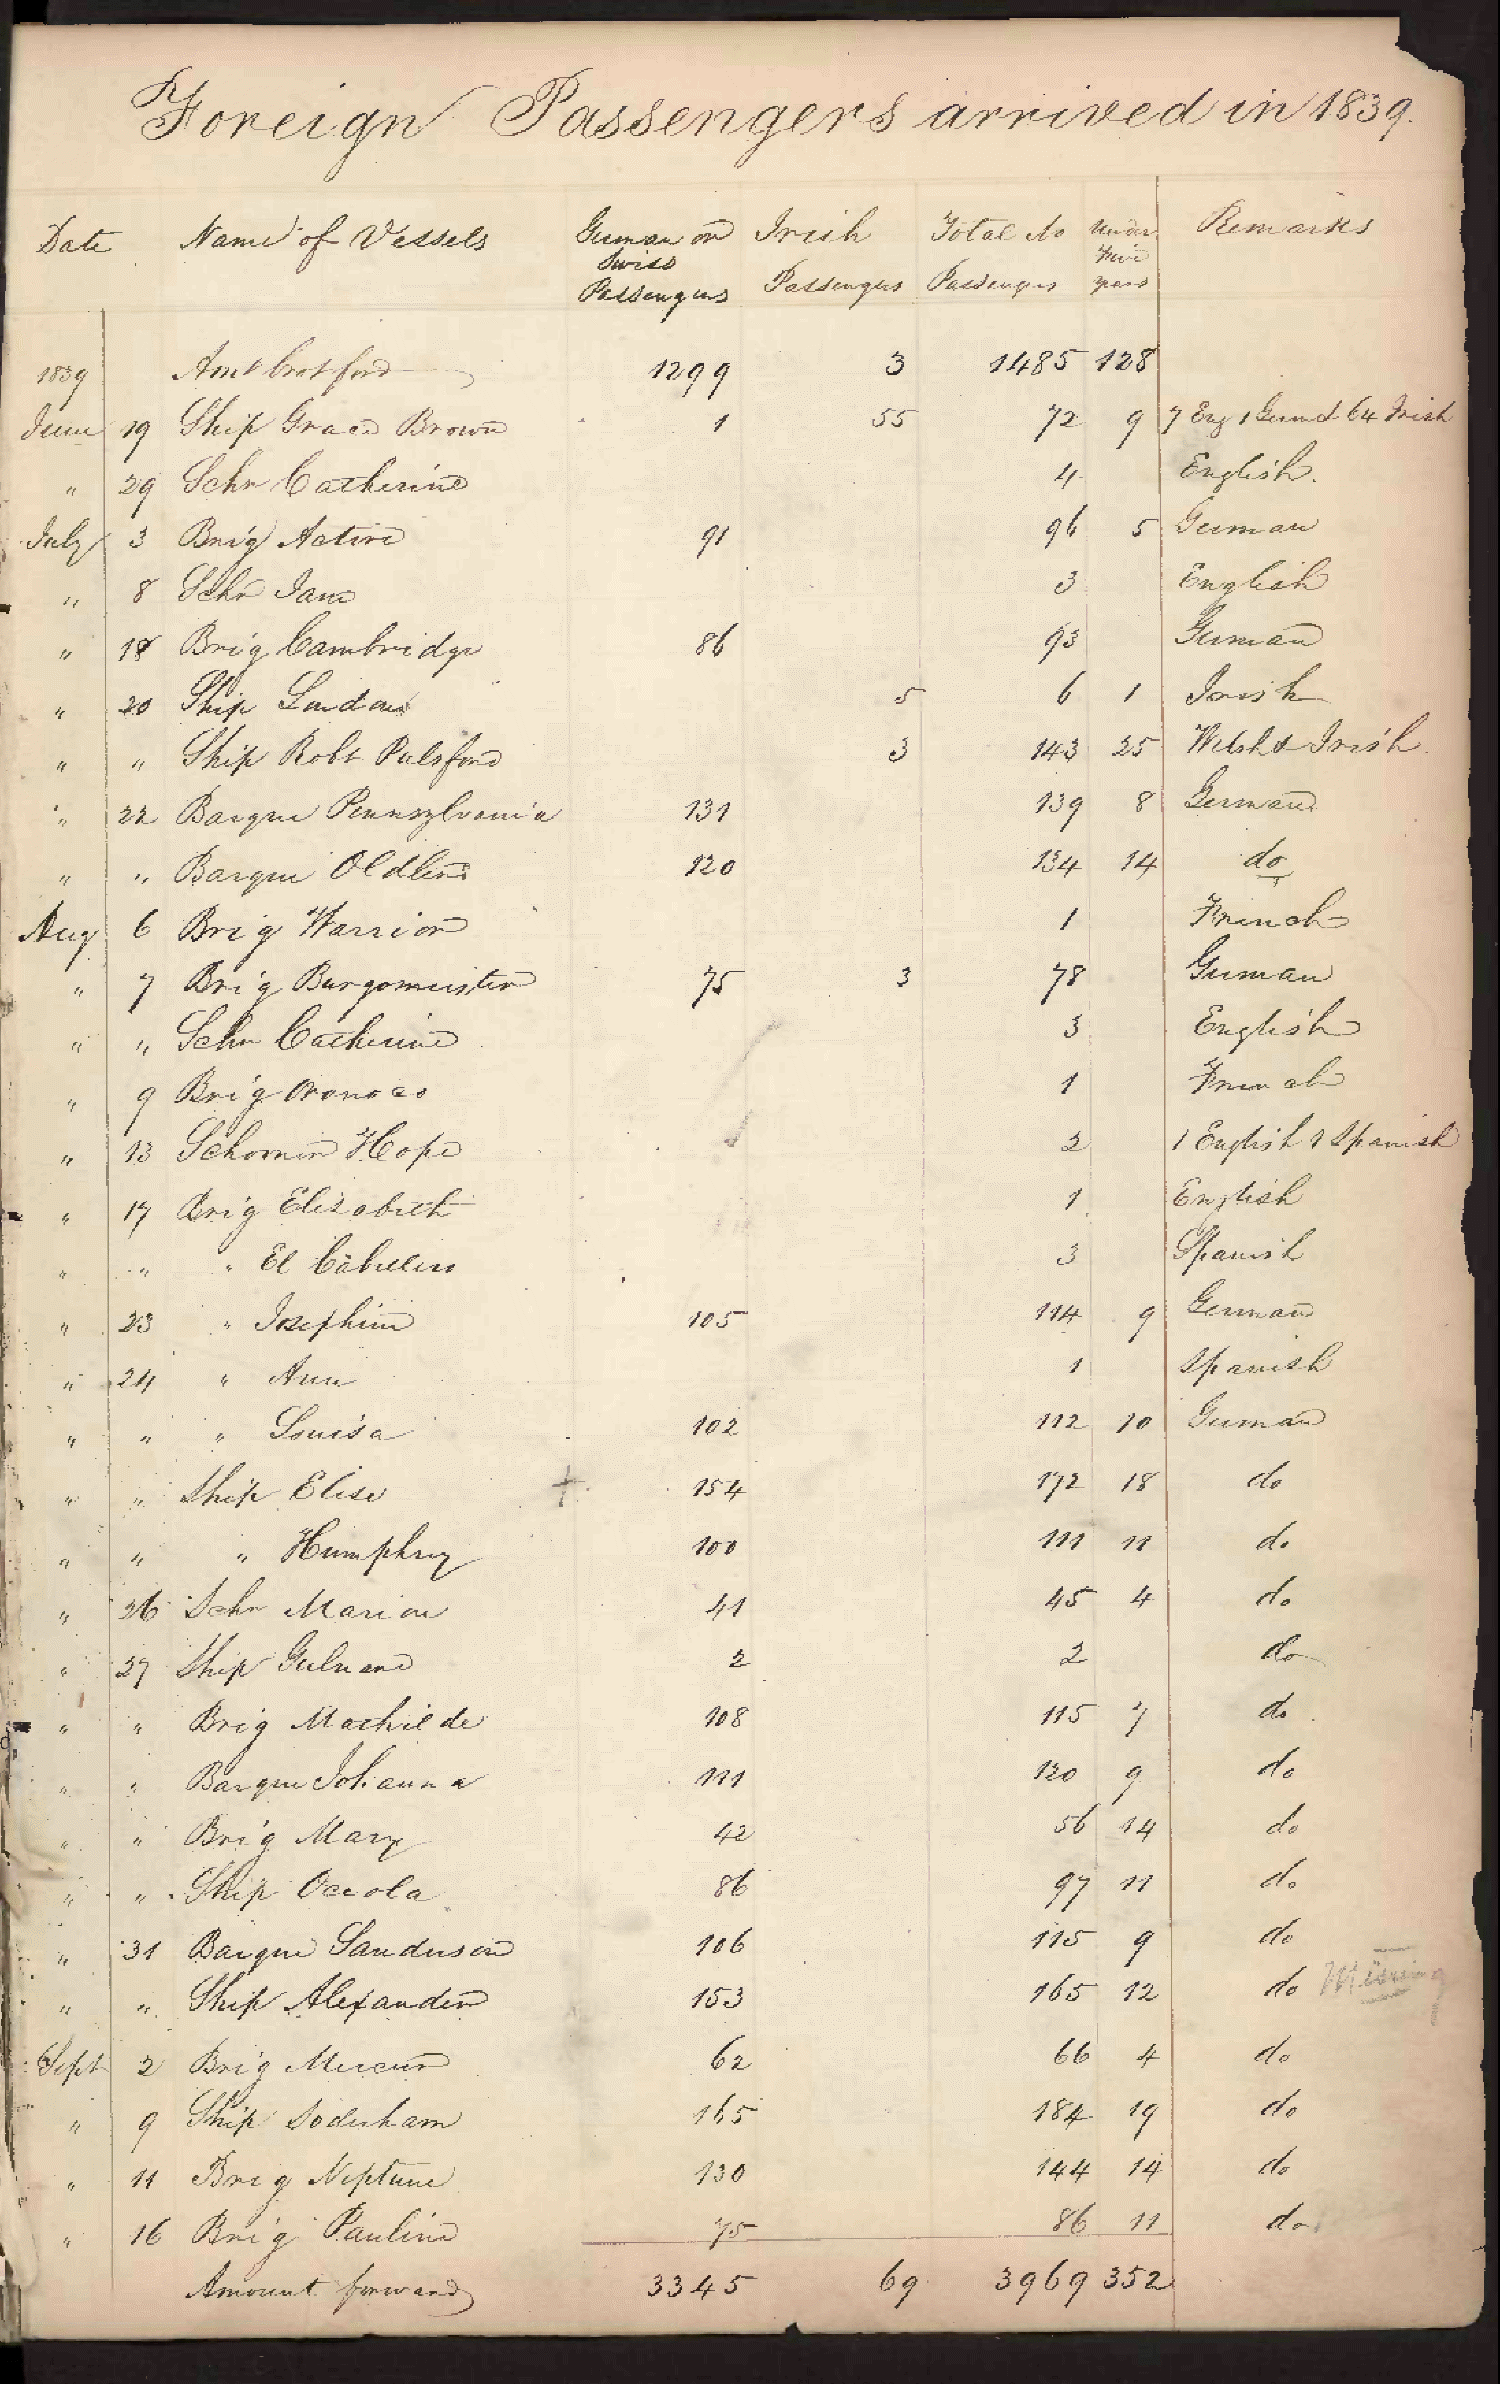 Foreign Passengers arrived in 1839.
Date Name of Vessels German or Swiss Passengers Irish Passengers Total No Passengers Under Five years Remarks
1839 Amt brot ford 1299 3 1485 128
June 19 Ship Grace Brown 1 55 72 9 7 Eng 1 Germ & 64 Irish
" 29 Schr Catherine 4 English.
July 3 Brig Active 91 96 5 German
" 8 Schr Jane 3 English
" 18 Brig Cambridge 86 93 German
" 20 Ship London 5 6 1 Irish
" " Ship Robt Pulsford 3 143 25 Welsh & Irish
" 22 Barque Pennsylvania 131 139 8 German
" " Barque Oldlers 120 134 14 do
Aug 6 Brig Warrior 1 French
" 7 Brig Burgomeister 75 3 78 German
" " Schr Catherine 3 English
" 9 Brig Oronoco 1 French
" 13 Schooner Hope 2 1 English 1 Spanish
" 17 Brig Elizabeth 1 English
" " " El 3 Spanish
" 23 " Josephine 105 114 9 German
" 24 " Ann 1 Spanish
" " " Louisa 102 112 10 German
" " Ship Elise + 154 172 18 do
" " " Humphrey 100 111 11 do
" 26 Schr Marion 41 45 4 do
" 27 Ship Gulnare 2 2 do
" " Brig Mathilde 108 115 7 do
" " Barque Johanna 111 120 9 do
" " Brig Mary 42 56 14 do
" " Ship Oceola 86 97 11 do
" 31 Barque Sanderson 106 115 9 do
" " Ship Alexander 153 165 12 do Missing
Sept 2 Brig Mercur 62 66 4 do
" 9 Ship Soderham 165 184 19 do
" 11 Brig Neptune 130 144 14 do
" 16 Brig Pauline 75 86 11 do
Amount forward 3345 69 3969 352